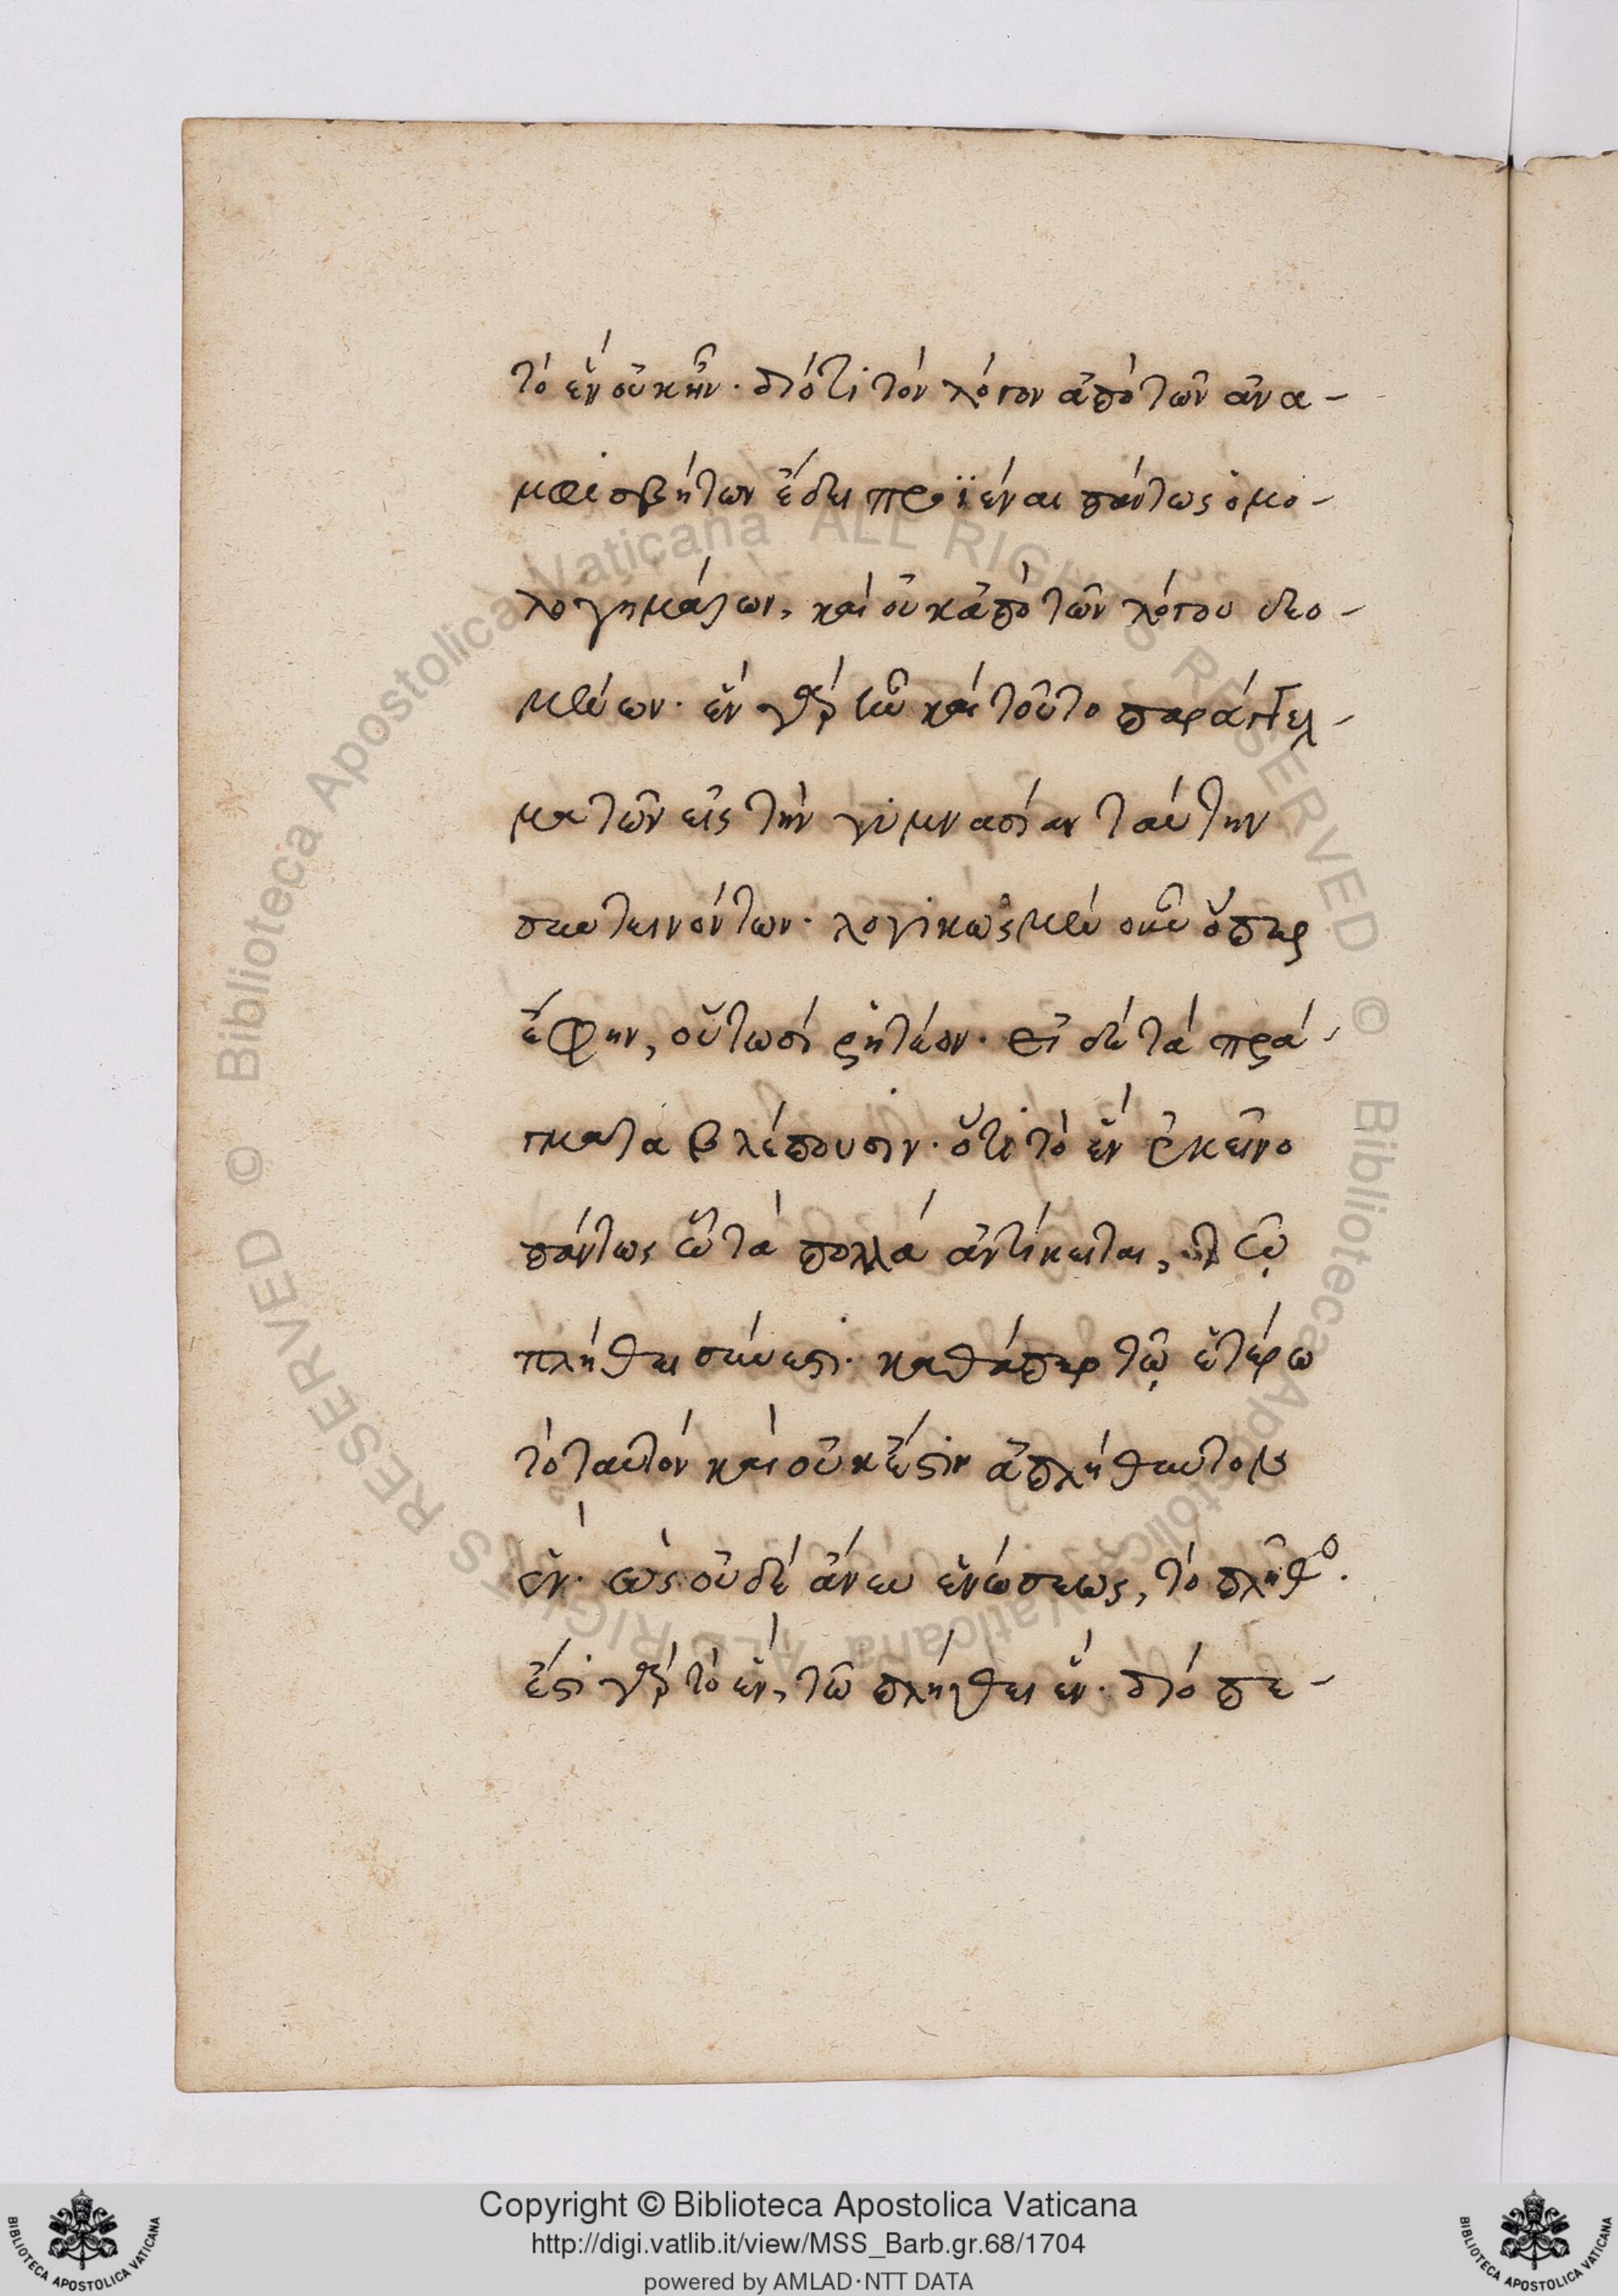 τὸ ἓν οὐκ ἦν· διότι τὸν λόγον ἀπὸ τῶν ἀνα-
μφισβήτων ἔδει προϊέναι πάντως ὁμο-
λογημάτων, καὶ οὐκ ἀπὸ τῶν λόγου δεο-
μένων· ἓν γὰρ ἦν καὶ τοῦτο παραγγελ-
μάτων εἰς τὴν γυμνασίαν ταύτην
συντεινόντων· λογικῶς μὲν οὖν ὅπερ
ἔφην, οὑτωσὶ ῥητέον· εἰ δὲ τὰ πρά-
γματα βλέπουσιν· ὅτι τὸ ἓν ἐκεῖνο
πάντως ᾧ τὰ πολλὰ ἀντίκειται,
πλήθει σύνεστι· καθάπερ τῷ ἑτέρω
τὸ ταυτὸν καὶ οὐκ ἔστιν ἀπλήθυντον
ἕν· ὡς οὐδὲ ἄνευ ἑνώσεως, τὸ πλῆθο.
ἔστι γὰρ τὸ ἓν, τῶ πλήθει ἕν· διό πε-
Copyright © Biblioteca Apostolica Vaticana
http://digi.vatlib.it/view/MSS_Barb.gr.68/1704
powered by AMLAD·NTT DATA
BIBLIOTECA APOSTOLICA VATICANA
BIBLIOTECA APOSTOLICA VATICANA
© Biblioteca Apostolica Vaticana ALL RIGHTS RESERVED
© Biblioteca Apostolica Vaticana ALL RIGHTS RESERVED